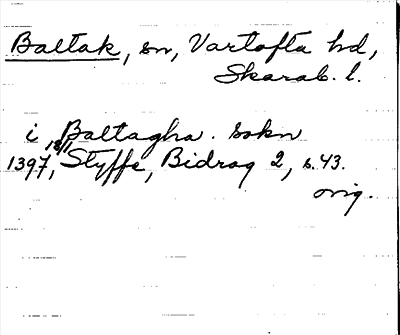 Baltak, sn, Vartofta hd,
Skarab. l.
i Baltagha. sokn
1397 18/11, Styffe, Bidrag 2, s. 43.
orig.